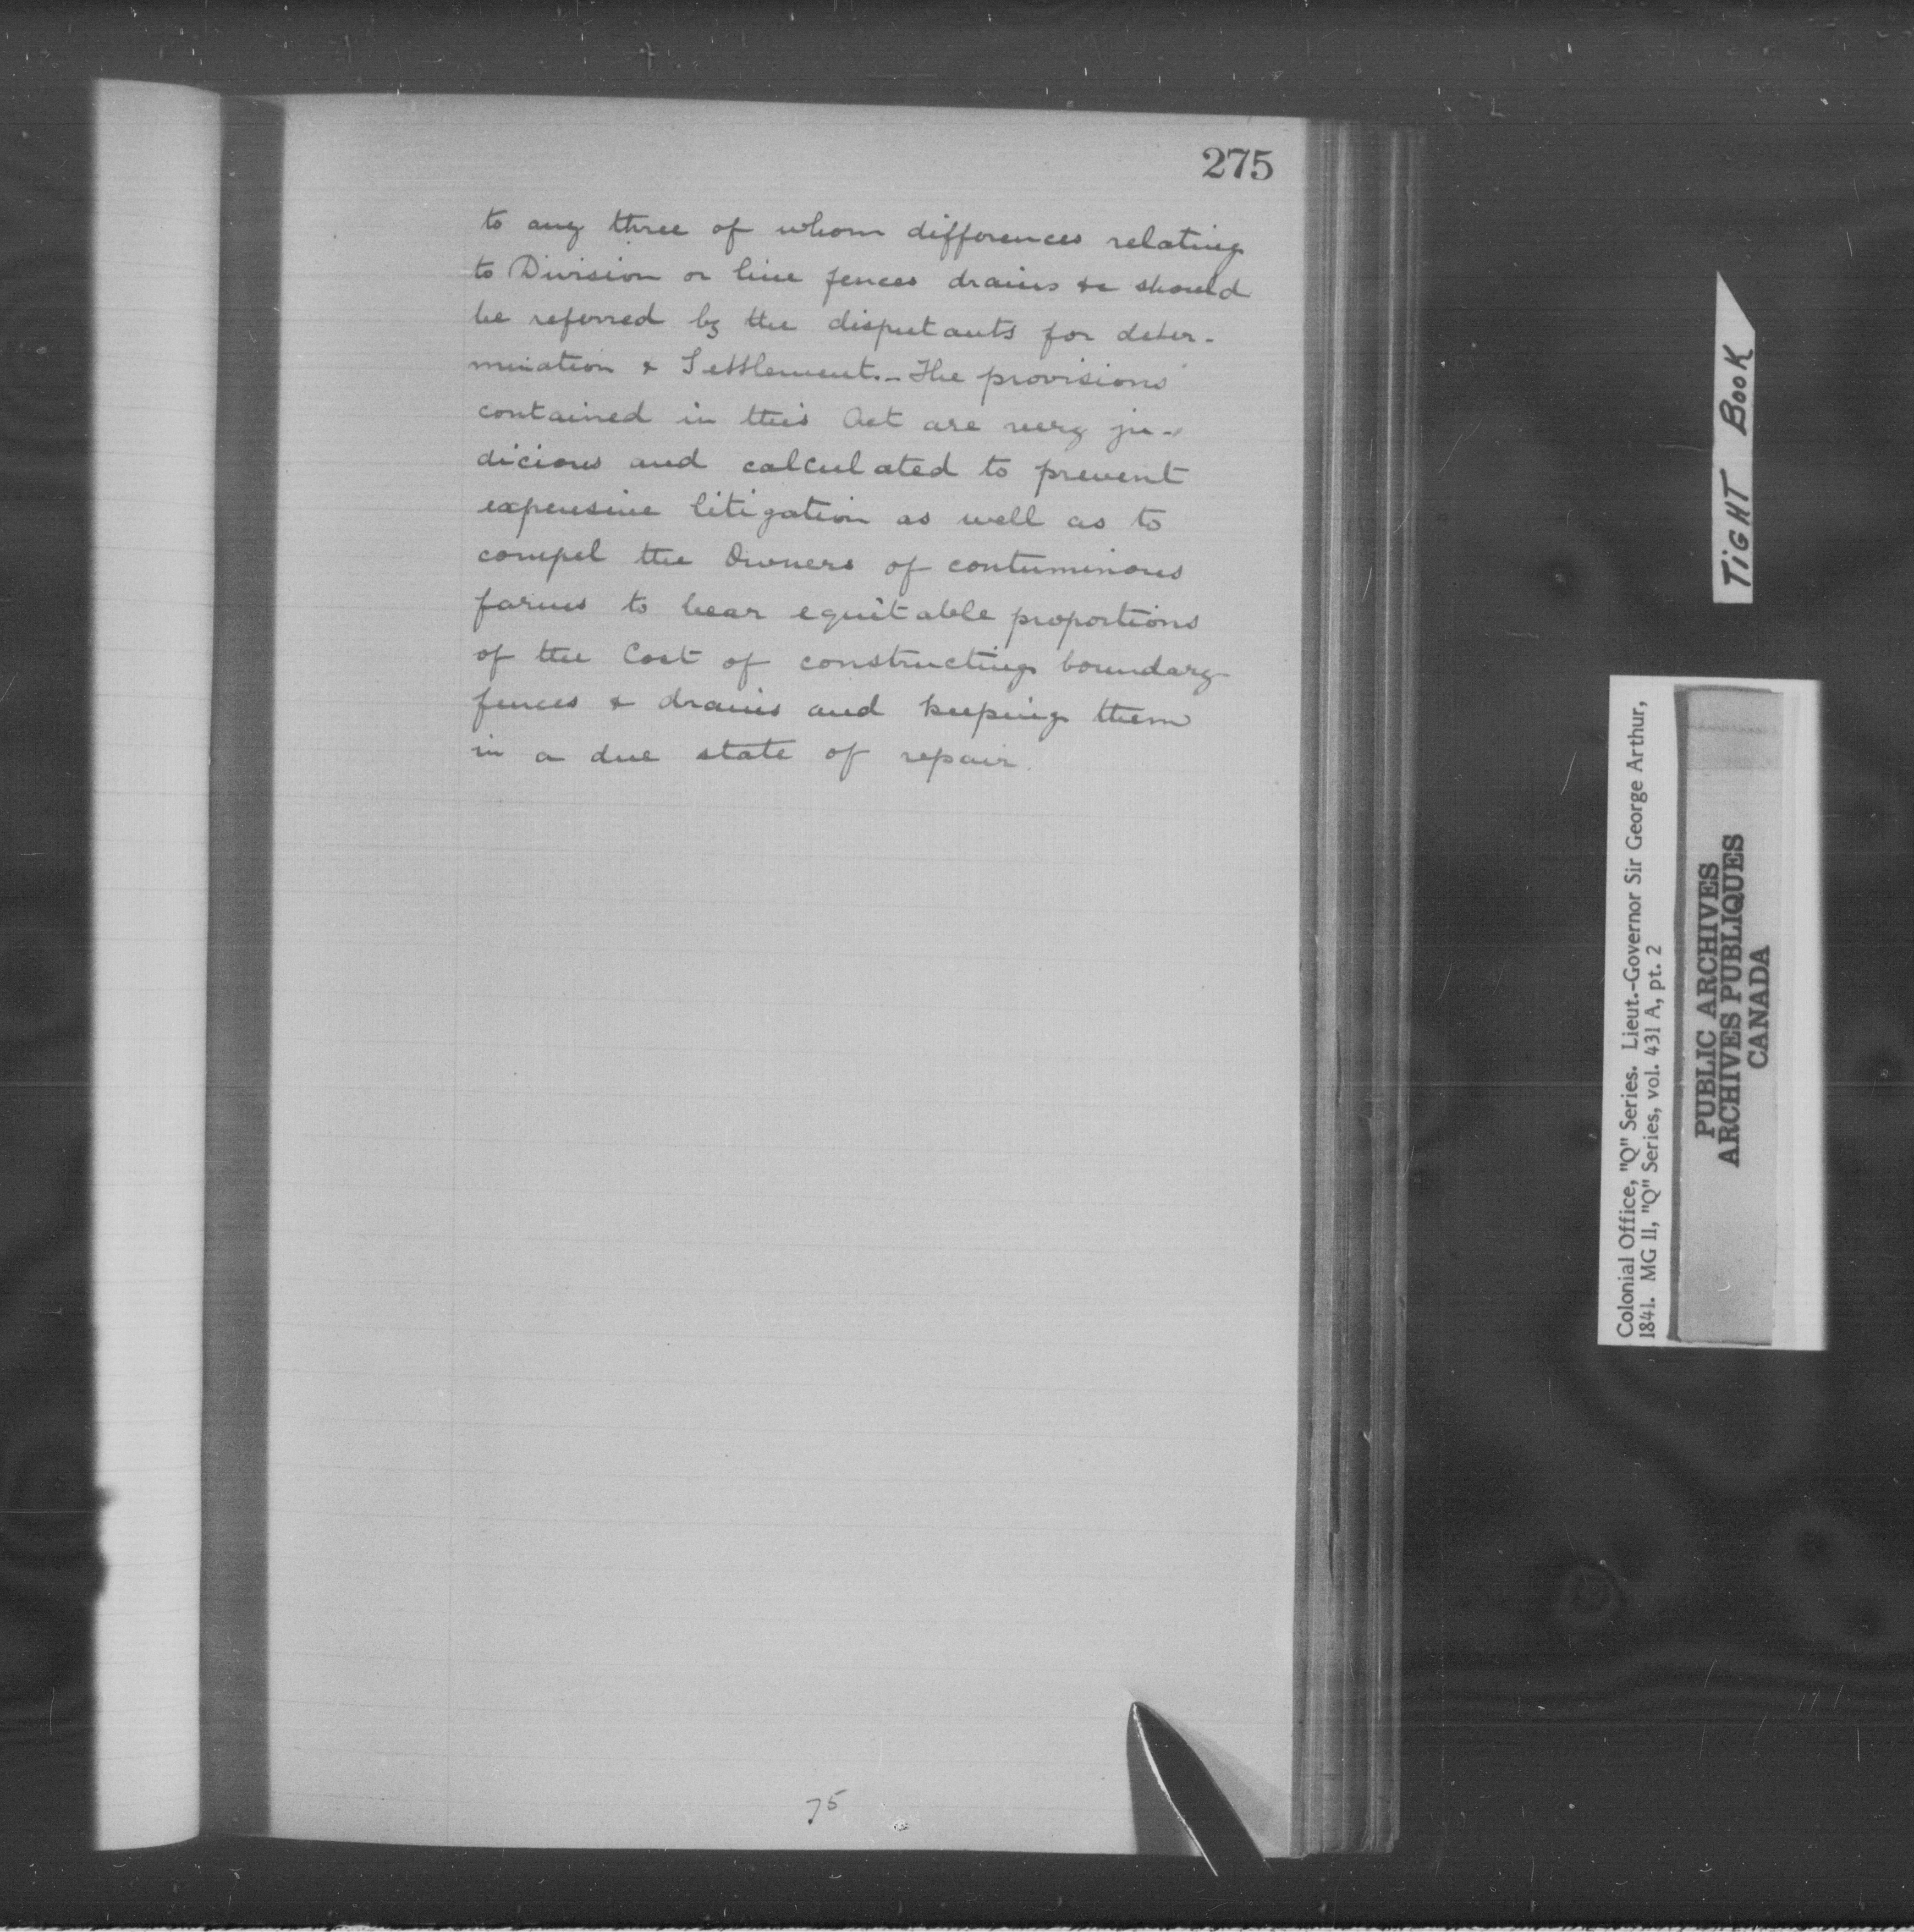 275
to any three of whom differences relating
to Division or line fences drains &c should
be referred by the disputants for deter-
mination & Settlement.- The provisions
contained in this Act are very ju-
dicious and calculated to prevent
expensive litigation as well as to
compel the Owners of contuminous
farms to bear equitable proportions
of the Cost of constructing boundary
fences & drains and keeping them
in a due state of repair.
75
TIGHT BOOK
Colonial Office, "Q" Series. Lieut.-Governor Sir George Arthur,
1841. MG 11, "Q" Series, vol. 431 A, pt. 2
PUBLIC ARCHIVES
ARCHIVES PUBLIQUES
CANADA